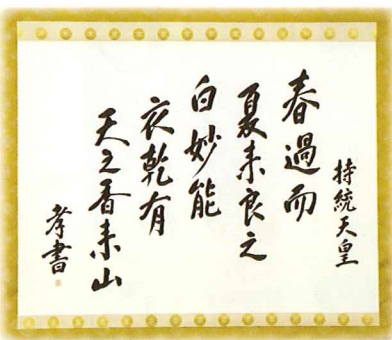 持統天皇
春過而
夏来良之
白妙能
衣乾有
天之香来山
孝書